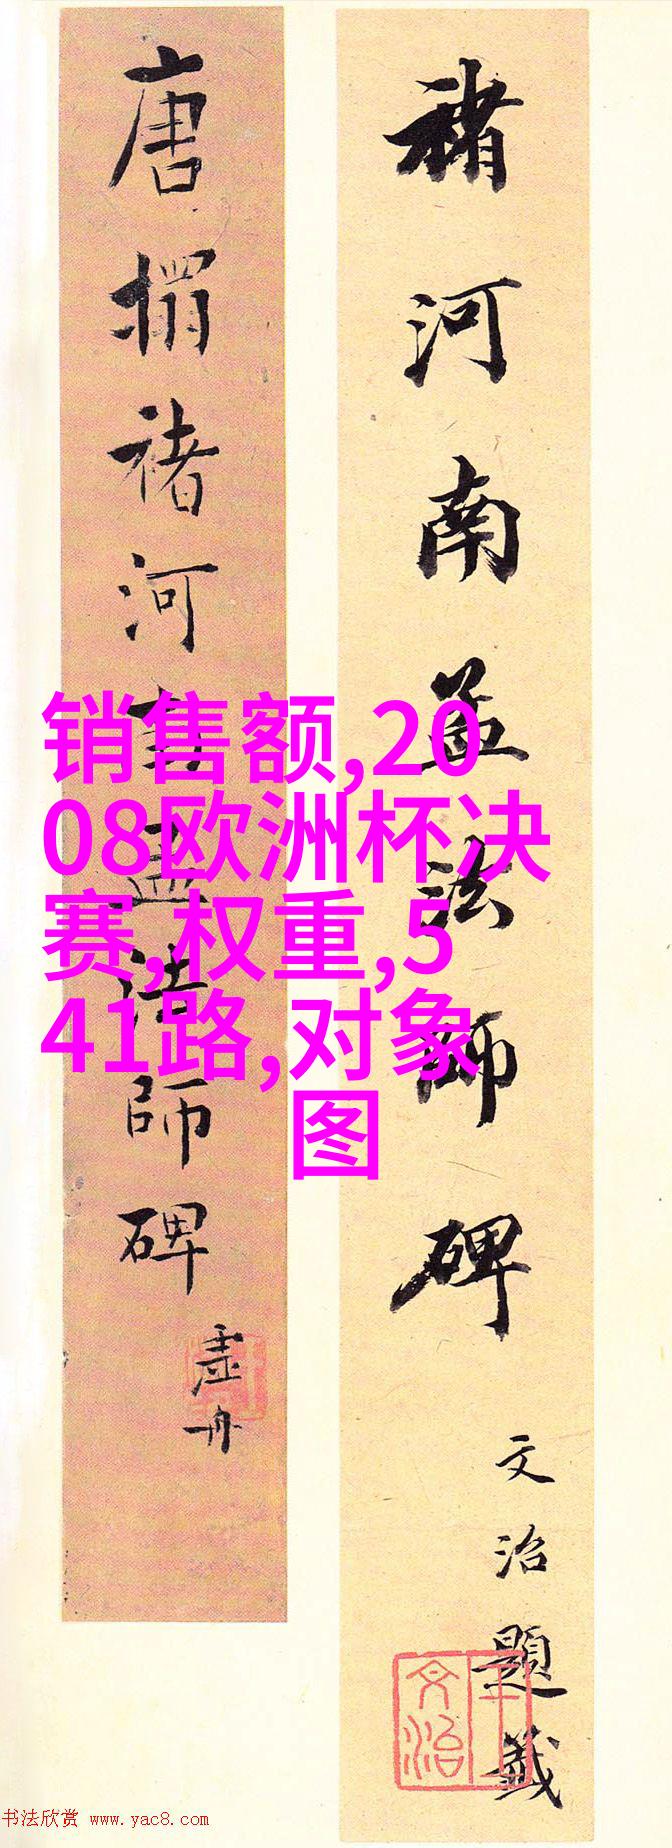 褚河南孟法師碑
文治題籤
王文治
唐搨褚河南孟法師碑
虛舟
销售额,20
08欧洲杯决
赛,权重,5
41路,对象
图
书法欣赏 www.yac8.com